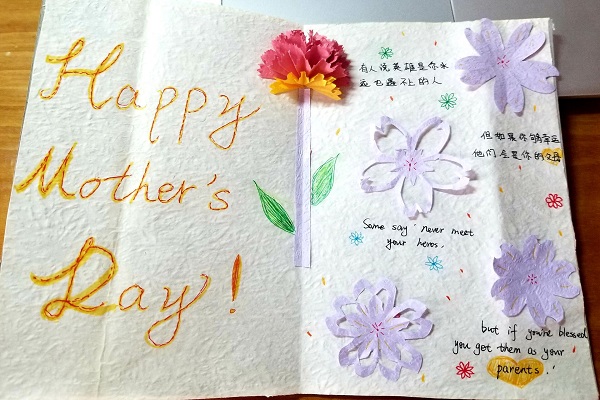 Happy
Mother's
Day!
有人说英雄是你永
远也遇不上的人
但如果你够幸运
他们会是你的父母
Some say "never meet
your heros.
but if you're blessed
you get them as your
parents."